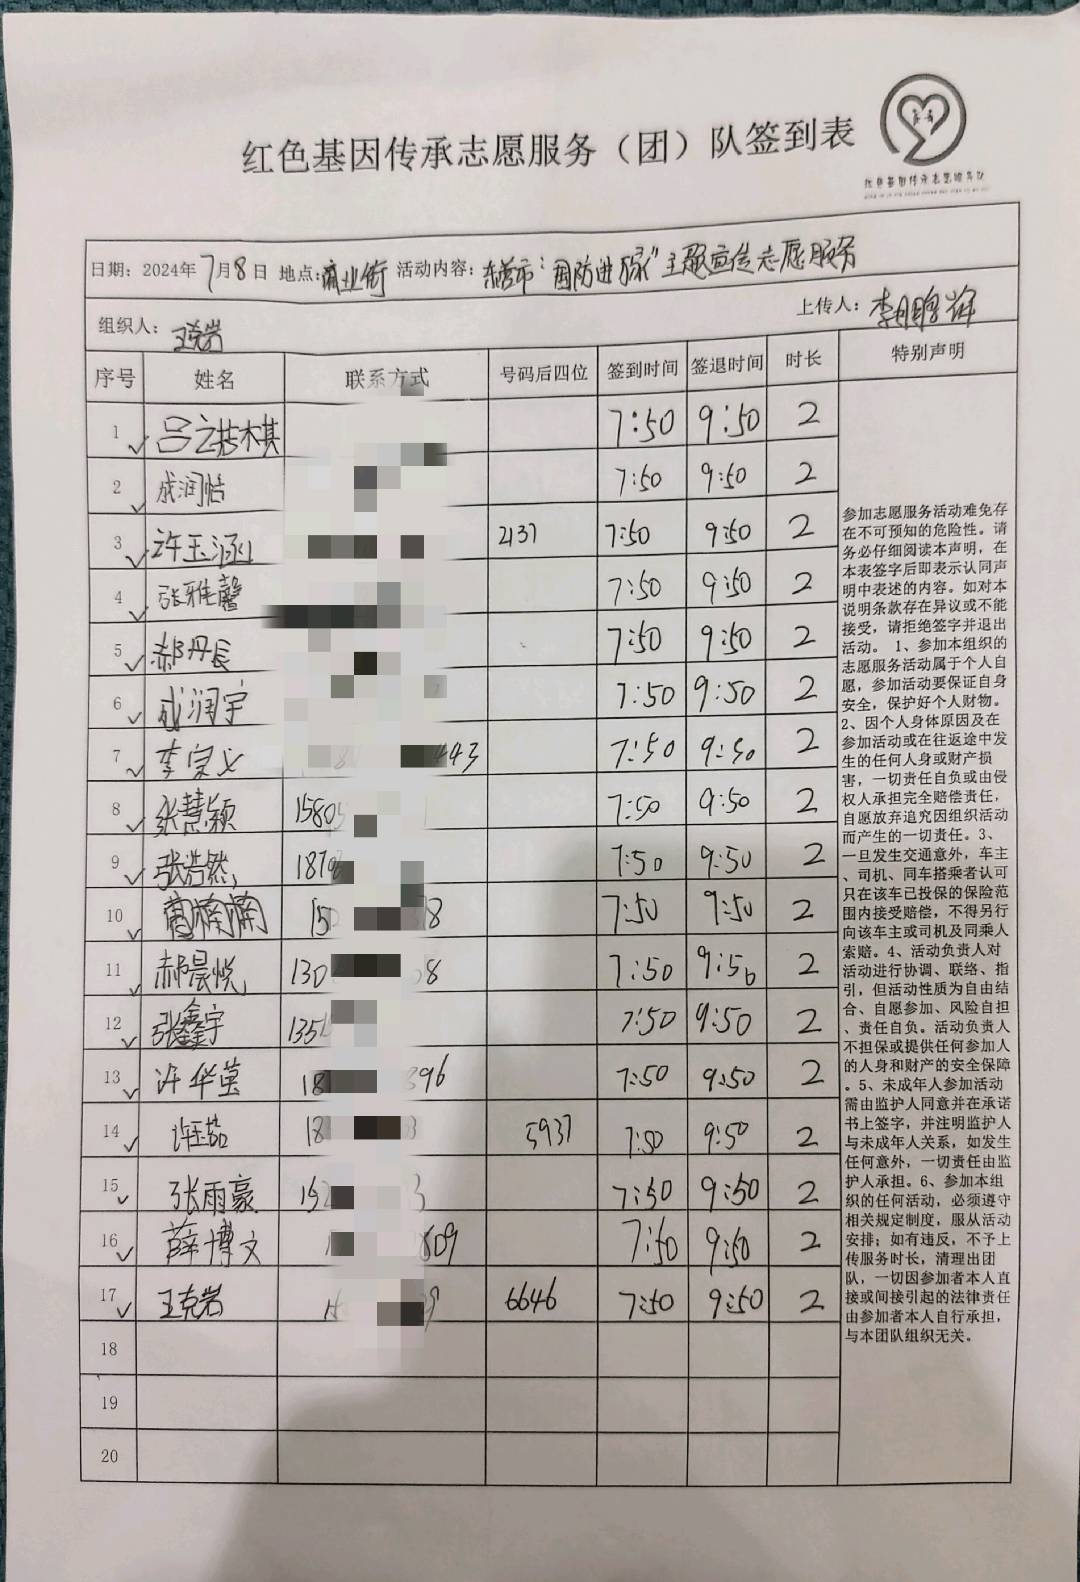 红色基因传承志愿服务（团）队签到表
红色基因传承志愿服务队
日期：2024年7月8日 地点：商业街 活动内容：东营市“国防进万家”主题宣传志愿服务
组织人：王克岩 上传人：李鹏辉
序号 姓名 联系方式 号码后四位 签到时间 签退时间 时长 特别声明
1 7:50 9:50 2
2 成润恺 7:50 9:50 2
3 许玉涵 2137 7:50 9:50 2
4 张雅馨 7:50 9:50 2
5 郝丹长 7:50 9:50 2
6 成润宇 7:50 9:50 2
7 李宗义 443 7:50 9:50 2
8 张慧颖 1580 7:50 9:50 2
9 张浩然 187 7:50 9:50 2
10 曹楠楠 15 8 7:50 9:50 2
11 郝晨悦 130 8 7:50 9:50 2
12 张鑫宇 135 7:50 9:50 2
13 许华莹 18 396 7:50 9:50 2
14 许玉茹 18 5937 7:50 9:50 2
15 张雨豪 15 7:50 9:50 2
16 薛博文 1 809 7:50 9:50 2
17 王克岩 1 6646 7:50 9:50 2
18
19
20
参加志愿服务活动难免存
在不可预知的危险性。请
务必仔细阅读本声明，在
本表签字后即表示认同声
明中表述的内容。如对本
说明条款存在异议或不能
接受，请拒绝签字并退出
活动。 1、参加本组织的
志愿服务活动属于个人自
愿，参加活动要保证自身
安全，保护好个人财物。
2、因个人身体原因及在
参加活动或在往返途中发
生的任何人身或财产损
害，一切责任自负或由侵
权人承担完全赔偿责任，
自愿放弃追究因组织活动
而产生的一切责任。3、
一旦发生交通意外，车主
、司机、同车搭乘者认可
只在该车已投保的保险范
围内接受赔偿，不得另行
向该车主或司机及同乘人
索赔。4、活动负责人对
活动进行协调、联络、指
引，但活动性质为自由结
合、自愿参加、风险自担
、责任自负。活动负责人
不担保或提供任何参加人
的人身和财产的安全保障
。5、未成年人参加活动
需由监护人同意并在承诺
书上签字，并注明监护人
与未成年人关系，如发生
任何意外，一切责任由监
护人承担。6、参加本组
织的任何活动，必须遵守
相关规定制度，服从活动
安排；如有违反，不予上
传服务时长，清理出团
队，一切因参加者本人直
接或间接引起的法律责任
由参加者本人自行承担，
与本团队组织无关。